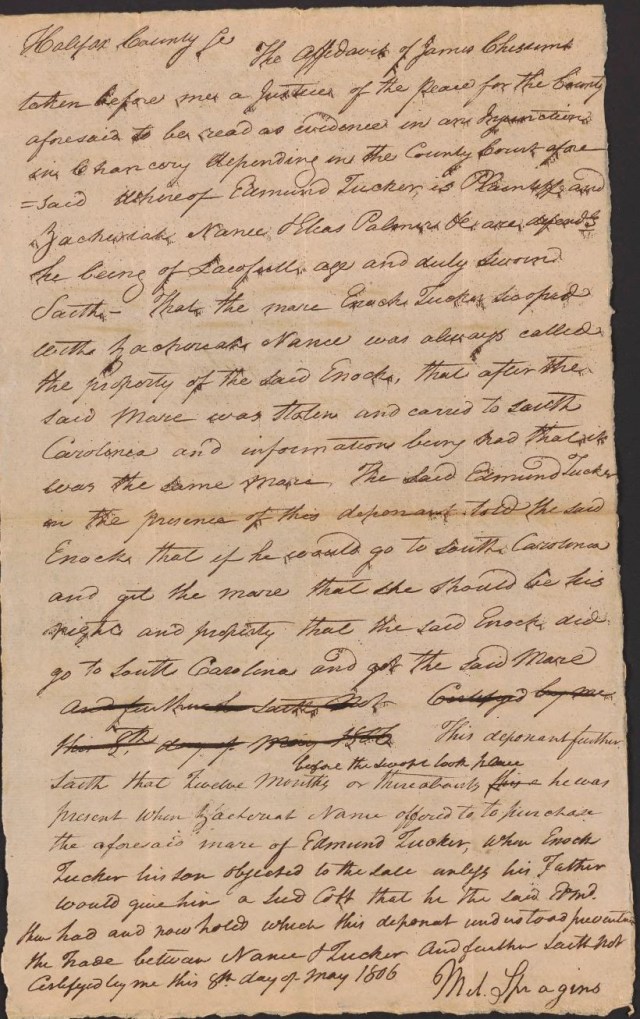 Halifax County Sc The Affidavit of James Chissum
taken before me a Justice of the peace for the County
aforesaid to be read as evidence in an Injunction
in Chancery depending in the County Court afore
=said whereof Edmund Tucker is Plaintiff and
Zacheriah Nance & Elias Palmer &c are defendts
he being of Lacofull age and duly sworn
Saith - That the mare Enoch Tucker swoped
with Zacheriah Nance was always called
the property of the said Enoch, that after the
said mare was stolen and carred to South
Carolinea and information being had that it
was the same mare, The said Edmund Tucker
in the presence of this deponant told the said
Enoch that if he would go to South Carolinea
and git the mare that she should be his
right and property that the said Enoch did
go to South Carolina and got the said Mare
And further saith Not Certifyed by me
this 8th day of May 1806 This deponant further
before the swopt took place
saith that Twelve Months or thereabouts he was
present when Zacheriah Nance offored to to purchase
the aforesaid mare of Edmund Tucker, when Enoch
Tucker his son objected to the sale unless his Father
would give him a Sud Colt that he the said Edmd.
then had and now hold which this deponat understood prevented
the Trade between Nance & Tucker And further saith not
Certifyed by me this 8th day of May 1806
Mel. Spragins